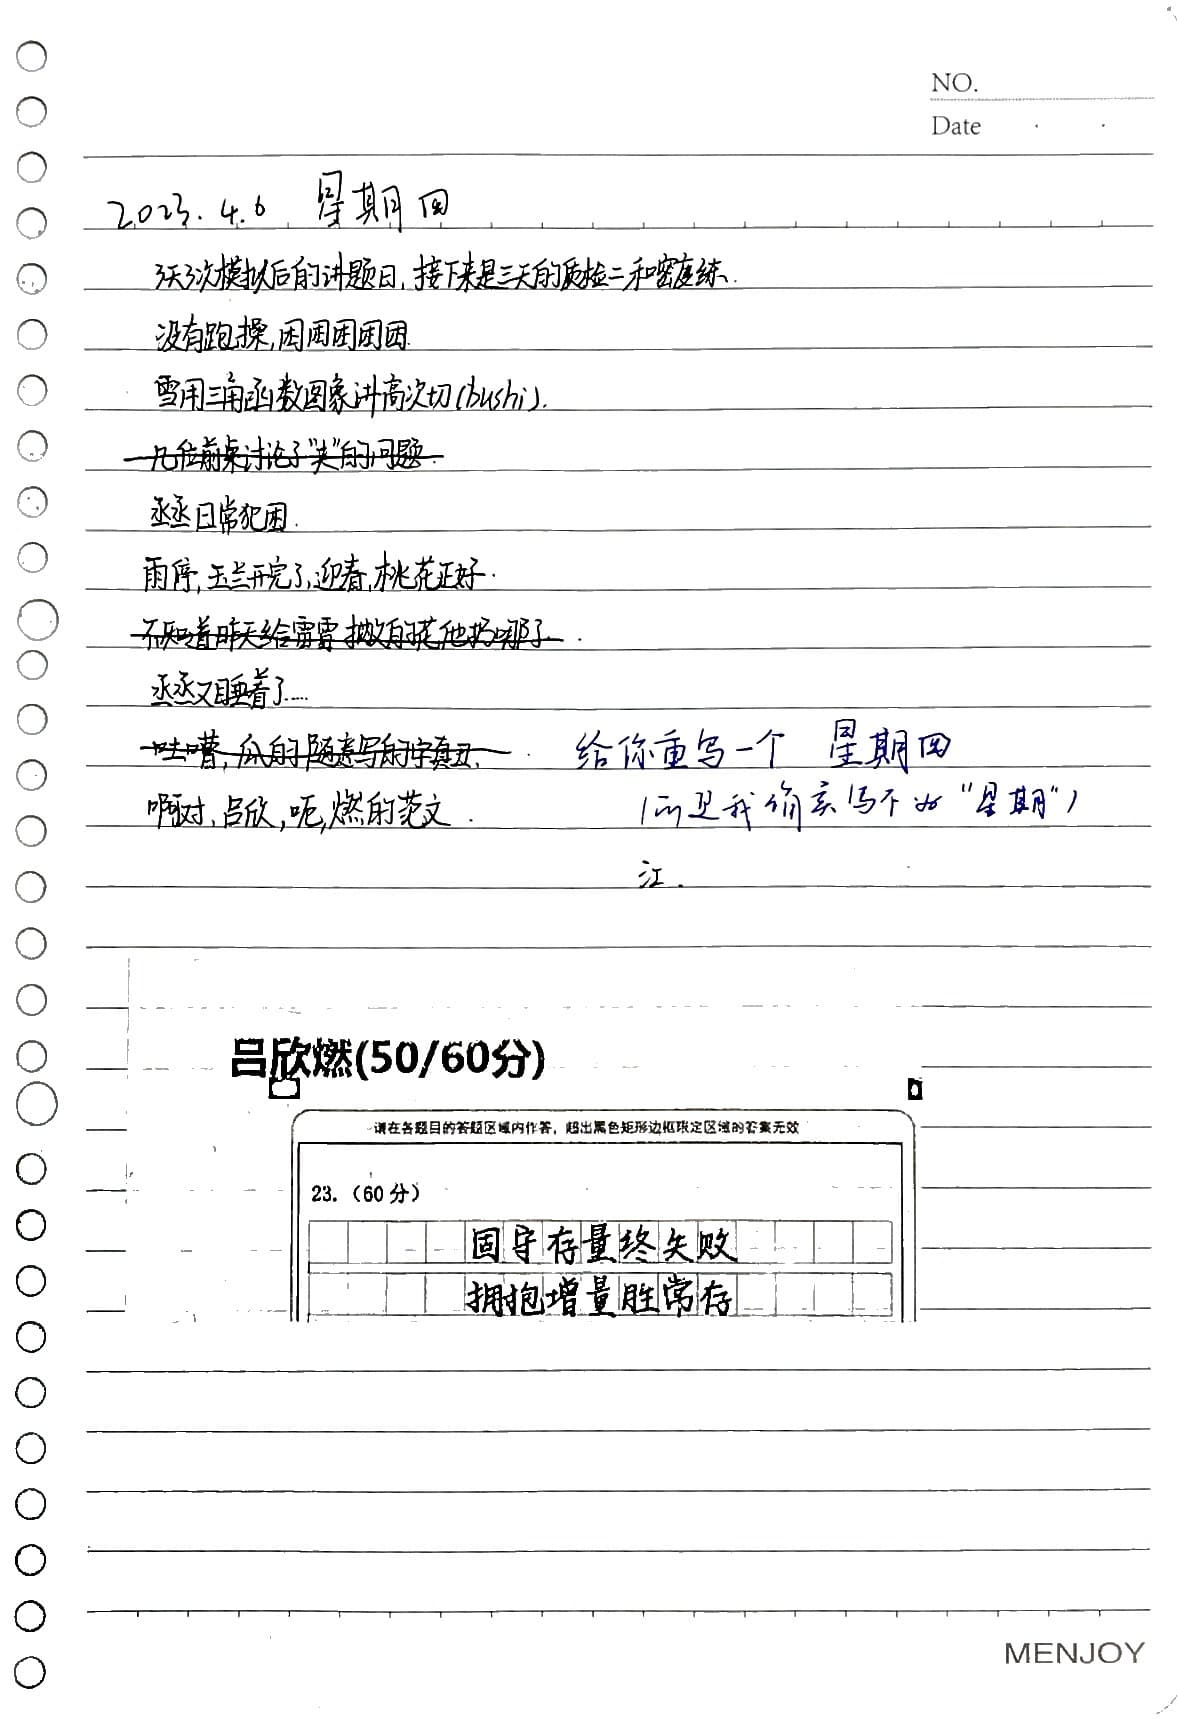 NO.
Date
2023.4.6 星期四
3天3次模拟后的讲题日,接下来是三天的质检二和密卷练.
没有跑操,困困困困困.
雪用三角函数图象讲高次切(bushi).
几位前桌讨论了"类"的问题.
丞丞日常犯困.
雨停,玉兰开完了,迎春,桃花正好.
不知道昨天给雷雷 的花他扔哪了.
丞丞又睡着了……
吐嘈,爪的随意写的字真丑. 给你重写一个 星期四
啊对,吕欣,呃,燃的范文. (而且我 写不好"星期")
江.
吕欣燃(50/60分)
请在各题目的答题区域内作答，超出黑色矩形边框限定区域的答案无效
23.（60 分）
固守存量终失败
拥抱增量胜常存
MENJOY